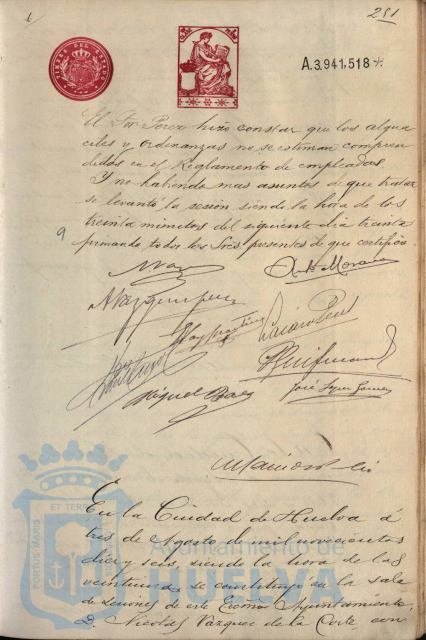 251
TIMBRE DEL ESTADO
A.3.941,518*
El Sor Perez hizo constar que los algua
ciles y ordenanzas no se estiman compren
didos en el Reglamento de empleados.
Y no habiendo mas asuntos de que tratar
se levantó la sesion siendo la hora de los
treinta minutos del siguiente dia treinta
firmando todos los Sres presentes de que certifico.
A. Vazquez
Miguel Baez
En la Ciudad de Huelva á
tres de Agosto de mil novecientos
diez y seis, siendo la hora de las
veintiuna se constituyó en la sala
de sesiones de este Excmo Ayuntamiento,
D. Nicolás Vázquez de la Corte con
PORTUS MARIS
ET TERRÆ
Ayuntamiento de
HUELVA